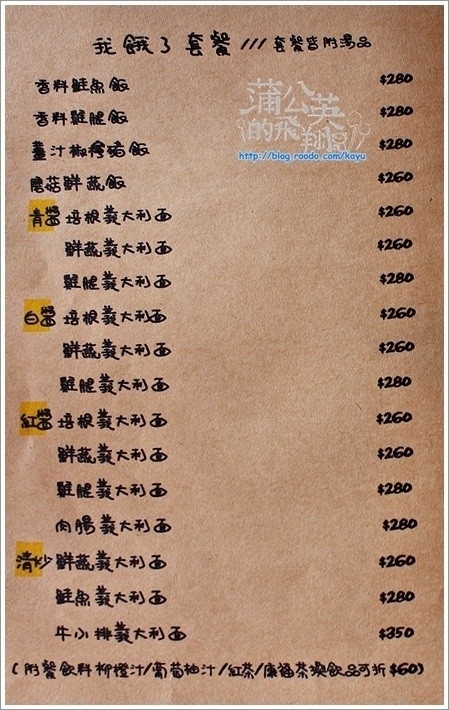 我餓了套餐///套餐皆附湯品
香料鮭魚飯 $280
香料雞腿飯 $280
薑汁椒烤豬飯 $280
磨菇鮮蔬飯 $260
青醬 培根義大利面 $260
鮮蔬義大利面 $260
雞腿義大利面 $280
白醬 培根義大利面 $260
鮮蔬義大利面 $260
雞腿義大利面 $280
紅醬 培根義大利面 $260
鮮蔬義大利面 $260
雞腿義大利面 $280
肉腸義大利面 $280
清炒 鮮蔬義大利面 $260
鮭魚義大利面 $280
牛小排義大利面 $350
(附餐飲料柳橙汁/葡萄柚汁/紅茶/康福茶換飲品可折$60)
蒲公英
的飛翔
http://blog.roodo.com/kayu